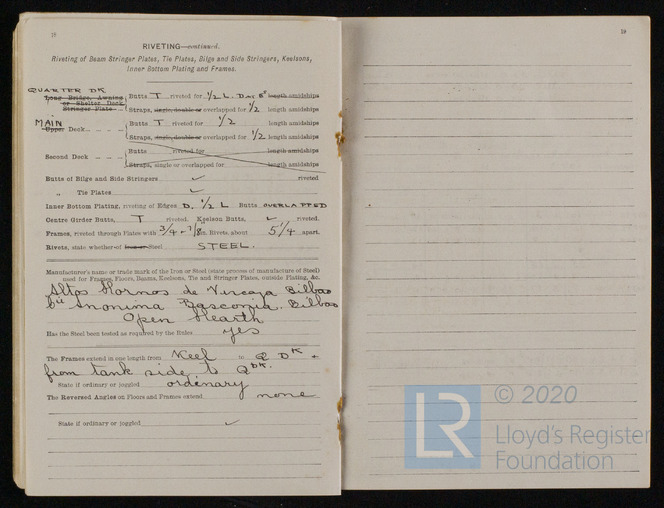 18
RIVETING—continued.
Riveting of Beam Stringer Plates, Tie Plates, Bilge and Side Stringers, Keelsons,
Inner Bottom Plating and Frames.
QUARTER DK
Long Bridge, Awning Butts T riveted for 1/2 L. D length amidships
or Shelter Deck
Stringer Plate Straps, single, double or overlapped for 1/2 length amidships
MAIN Butts T riveted for 1/2
Upper Deck
Straps, single, double or overlapped for 1/2 length amidships
Butts riveted for length amidships
Second Deck
Straps, single or overlapped for length amidships
Butts of Bilge and Side Stringers ✓ riveted
„ Tie Plates ✓
Inner Bottom Plating, riveting of Edges D. 1/2 L Butts OVERLAPPED
Centre Girder Butts, T riveted. Keelson Butts, ✓ riveted.
Frames, riveted through Plates with 3/4 + 7/8 in. Rivets about 5 1/4 apart.
Rivets, state whether of Iron or Steel STEEL.
Manufacturer's name or trade mark of the Iron or Steel (state process of manufacture of Steel)
used for Frames, Floors, Beams, Keelsons, Tie and Stringer Plates, outside Plating, &c.
Altos Hornos de Vizcaya Bilbao
Cia Anonima Basconia. Bilbao
Open Hearth
Has the Steel been tested as required by the Rules yes
The Frames extend in one length from Keel to Q DK +
from tank side to Q DK.
State if ordinary or joggled ordinary
The Reversed Angles on Floors and Frames extend none
State if ordinary or joggled ✓
19
© 2020
LR
Lloyd's Register
Foundation